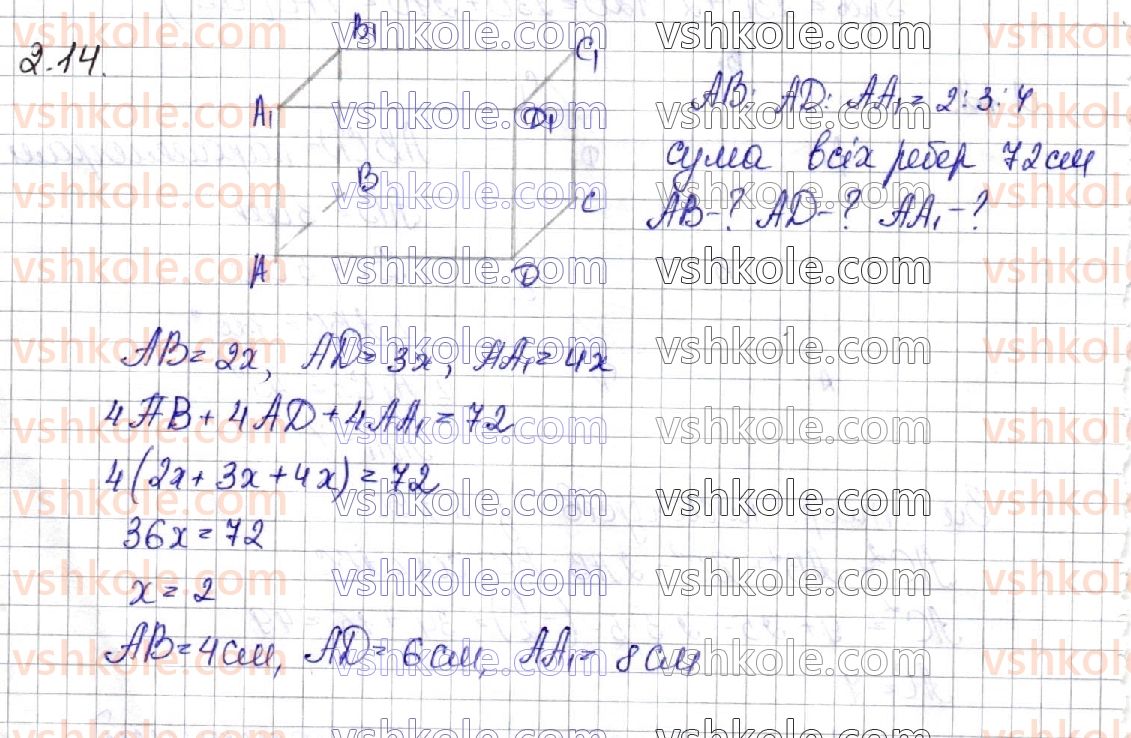 2.14.
B₁
C₁
A₁
D₁
B
C
A
D
AB : AD : AA₁ = 2 : 3 : 4
сума всіх ребер 72см
AB - ? AD - ? AA₁ - ?
AB = 2x, AD = 3x, AA₁ = 4x
4AB + 4AD + 4AA₁ = 72
4(2x + 3x + 4x) = 72
36x = 72
x = 2
AB = 4см, AD = 6см, AA₁ = 8см
vshkole.com